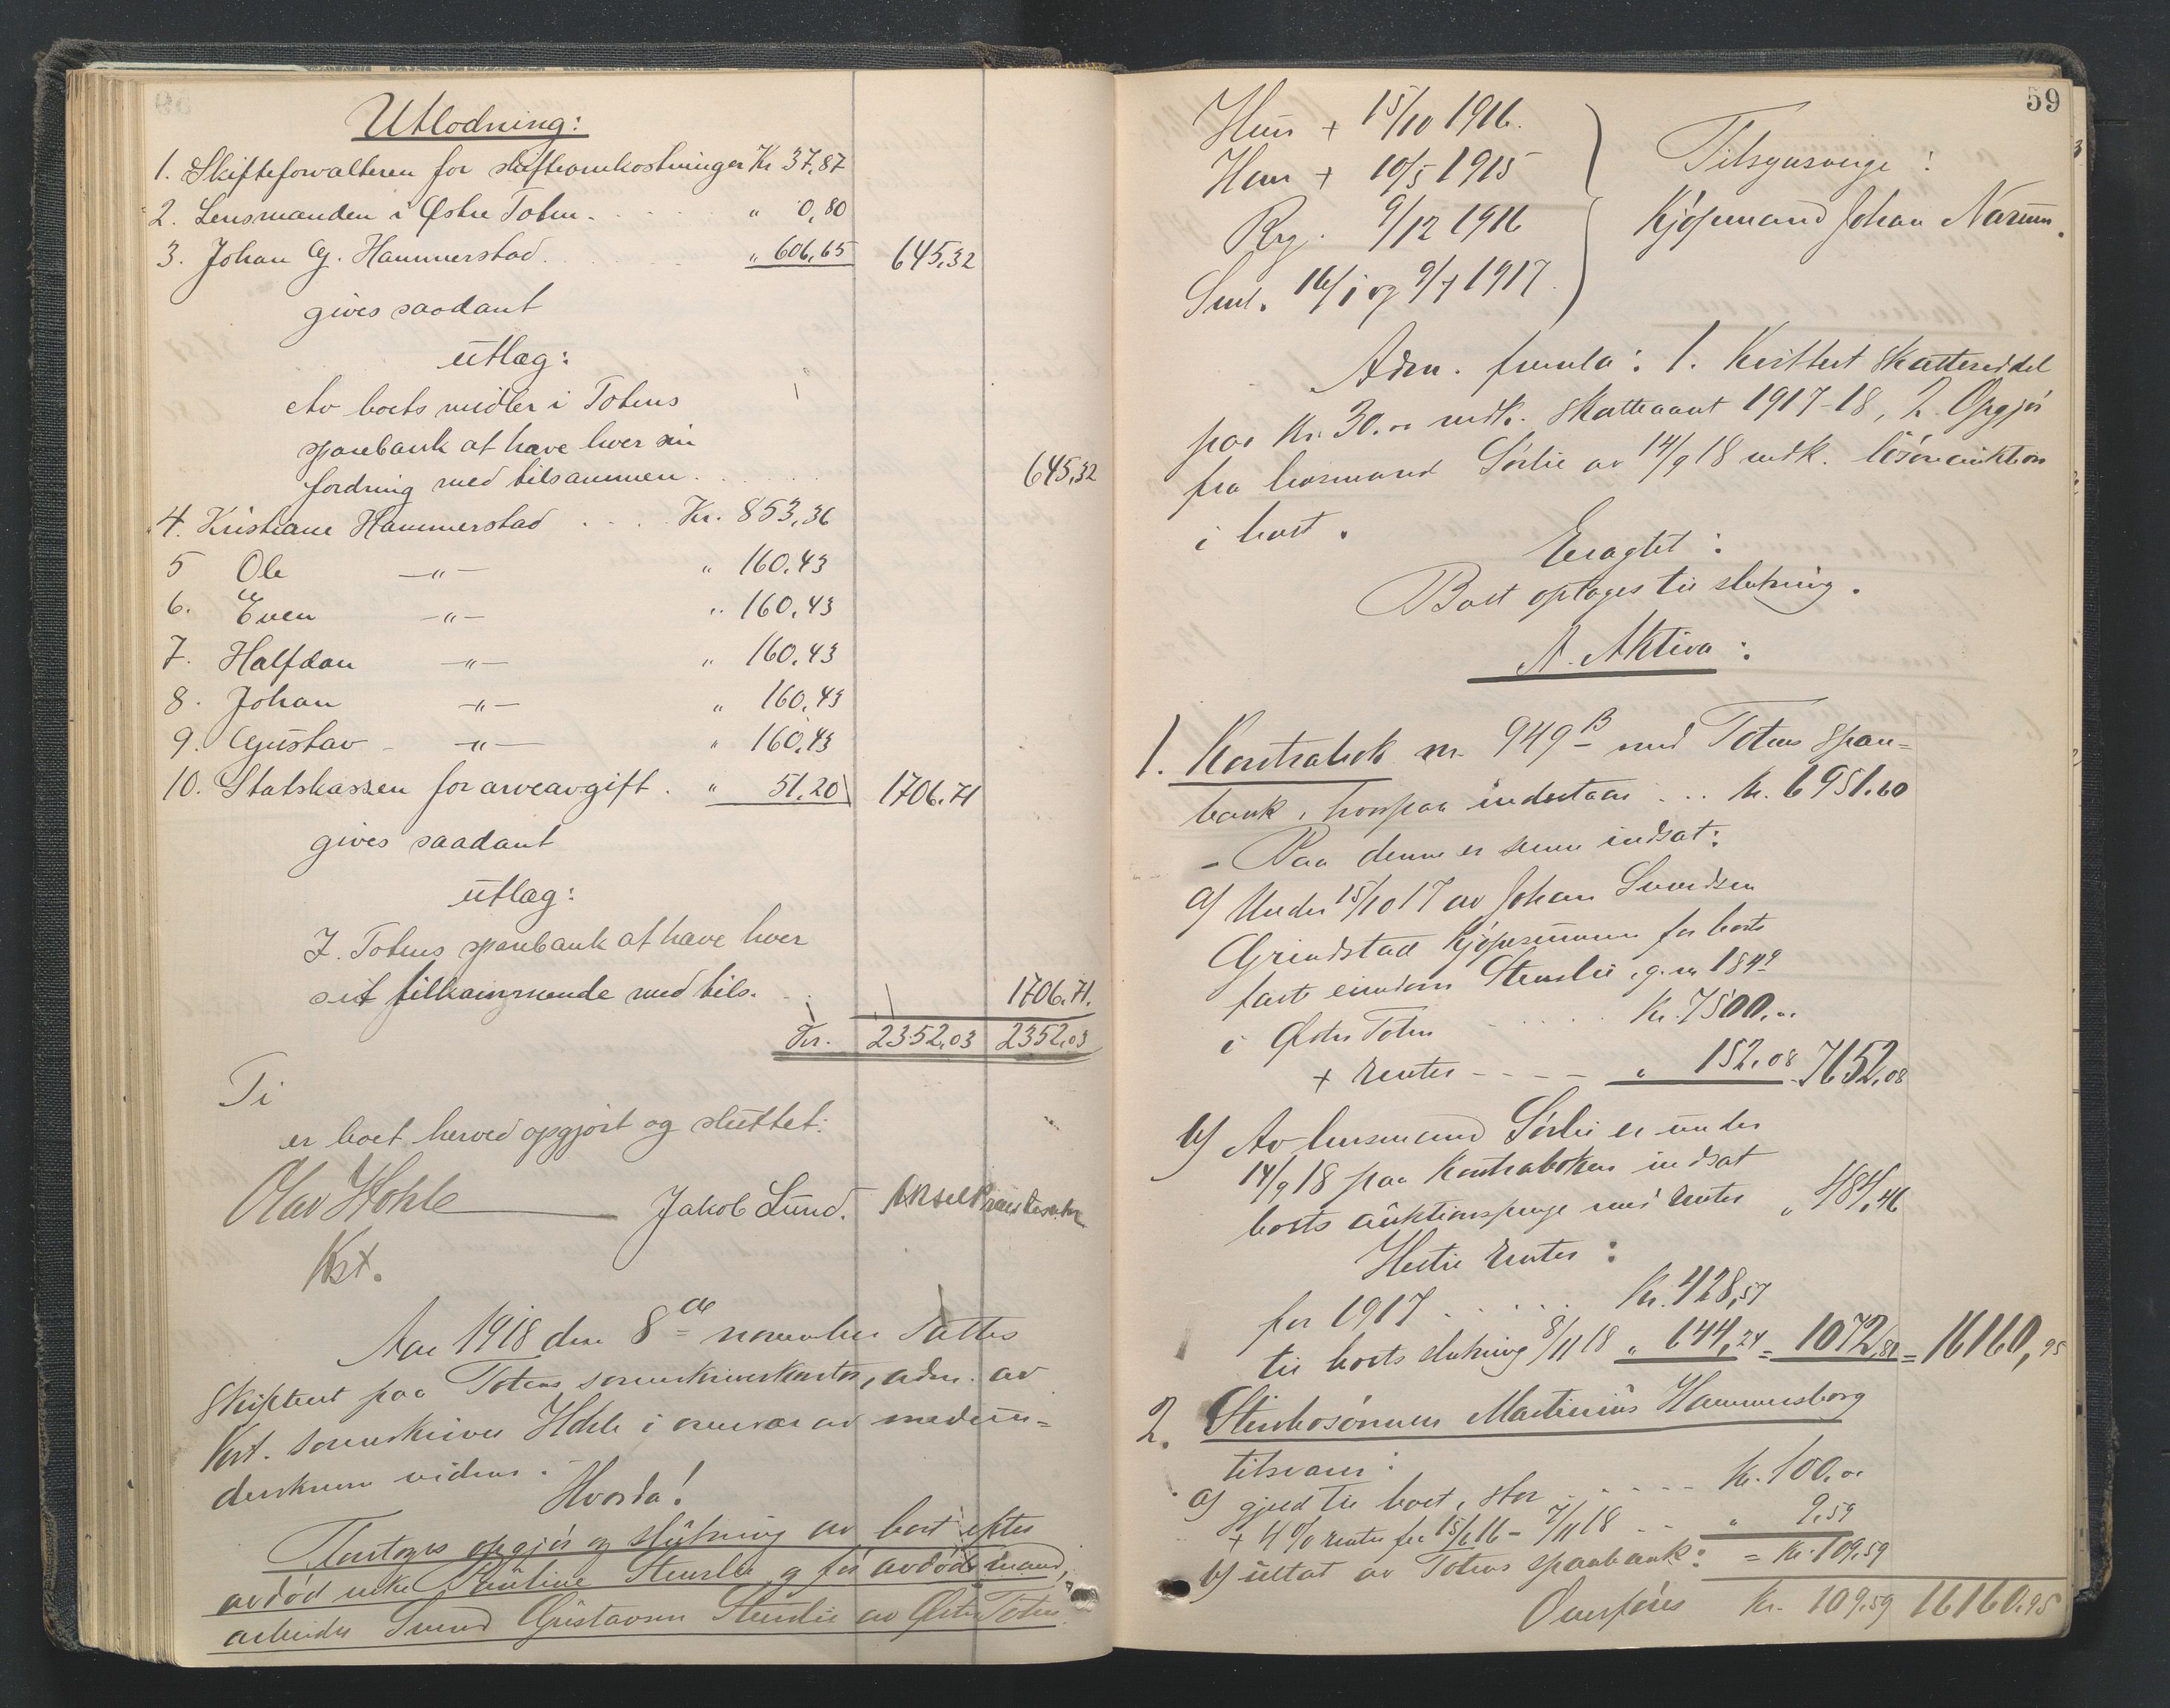 Utlodning:
1. Skifteforvalteren for skifteomkostninger Kr 37,87
2. Lensmanden i Østre Toten . . . „ 0,80
3. Johan G. Hammerstad . . . „ 606,65 645,32
gives saadant
utlæg:
Av boets midler i Totens
sparebank at have hver sin
fordring med tilsammen . . . 645,32
4. Kristiane Hammerstad . . . Kr. 853,36
5 Ole —„— „ 160,43
6. Even —„— „ 160,43
7. Halfdan —„— „ 160,43
8. Johan —„— „ 160,43
9. Gustav —„— „ 160,43
10. Statskassen for arveavgift . „ 51,20 1706,71
gives saadant
utlæg:
I Totens sparebank at have hver
sit tilkommende med tils. 1706,71.
Kr. 2352,03 2352,03
Ti
er boet herved opgjort og sluttet:
Olav Hohle Jakob Lund.
Kst.
Aar 1918 den 8de november sattes
skifteret paa Totens sorenskriverkontor, adm. av
kst. sorenskriver Hohle i overvær av medun=
derskrevne vidner.
Hvorda!
Foretoges opgjør og slutning av boet efter
avdød enke Pauline Stenslie og før avdøde mand,
arbeider Svend Gustavsen Stenslie av Østre Toten.
59
Hun + 15/10 1916.
Han + 10/5 1915
Rg. 9/12 1916
Saml. 16/1 og 9/7 1917.
Tilsynsverge:
Kjøpmand Johan Narum.
Adm. fremla: 1. Kvittert skatteseddel
paa Kr. 30.00 vedk. skatteaaret 1917-18, 2. Opgjør
fra lensmand Sørlie av 14/9 18 vedk. løsøreauktion
i boet.
Eragtet:
Boet optages til slutning.
A. Aktiva:
1. Kontrabok nr. 949 B med Totens spare=
bank, hvorpaa indestaar . . . kr. 6951.60
- Paa denne er senere indsat:
a) Under 15/10 17 av Johan Svendsen
Grindstad kjøpesummen for boets
faste eiendom Stenslie, g. nr 184 9
i Østre Toten . . . Kr. 7500,00
+ renter - - - - „ 152.08 7652,08
b) Av lensmand Sørlie er under
14/9 18 paa Kontraboken indsat
boets auktionspenge med renter „ 484,46
Hertil renter:
for 1917 . . . Kr. 428,57
til boets slutning 8/11 18 „ 644,24 = 1072,81 = 16160,95
2. Stenbosønnen Martinius Hammersborg
tilsvarer:
a) gjæld til boet, stor . . . Kr. 100.00
+ 4% renter fra 15/6 16 - 7/11 18 . . „ 9,59
b) uttat av Totens sparebank: = Kr. 109,59
Overføres Kr. 109,59 16160,95